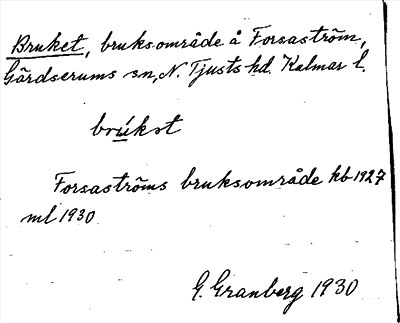 Bruket, bruksområde å Forsaström,
Gärdserums sn, N. Tjusts hd. Kalmar l.
brúkət
Forsaströms bruksområde kb 1927
ml 1930
G. Granberg 1930